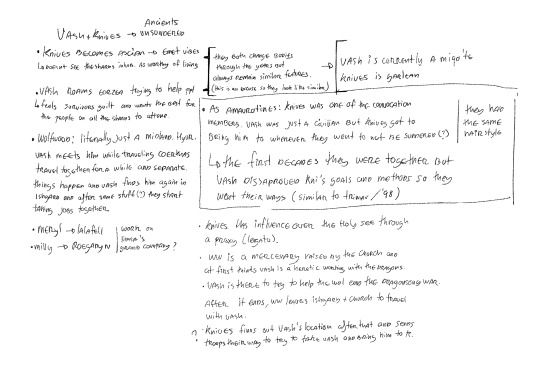 Ancients
Vash + Knives → unsundered
• Knives becomes ascian → Emet vibes
↳ doesnt see the shards inhab. as worthy of living
they both change bodies
through the years but
always remain similar features.
(this is an excuse so they look the similar)
Vash is currently a miqo'te
Knives is garlean
• Vash roams eorzea trying to help ppl
↳ feels survivors guilt and wants the best for
the people on all the shards to atone.
• Wolfwood: literally just a midland. Hyur.
Vash meets him while traveling Coerthas
travel together for a while and separate.
things happen and Vash finds him again in
Ishgard and after some stuff(?) they start
taking jobs together.
• Meryl → lalafell
• Milly → Roegadyn
work on
grand company?
• As Amaurotines: Knives was one of the convocation
members. Vash was just a civilian but Knives got to
bring him to whenever they went to not be sundered (?)
↳ the first decades they were together but
Vash disapproved Kni's goals and methods so they
went their ways (similar to trimax / '98)
they have
the same
hairstyle
• Knives has influence over the Holy See through
a proxy (legato).
• WW is a mercenary raised by the church and
at first thinks Vash is a heretic working with the dragons.
• Vash is there to try to help the wol end the dragonsong war.
After it ends, WW leaves ishgard + church to travel
with Vash.
• Knives finds out Vash's location after that and sends
troops their way to try to take Vash and bring him to K.